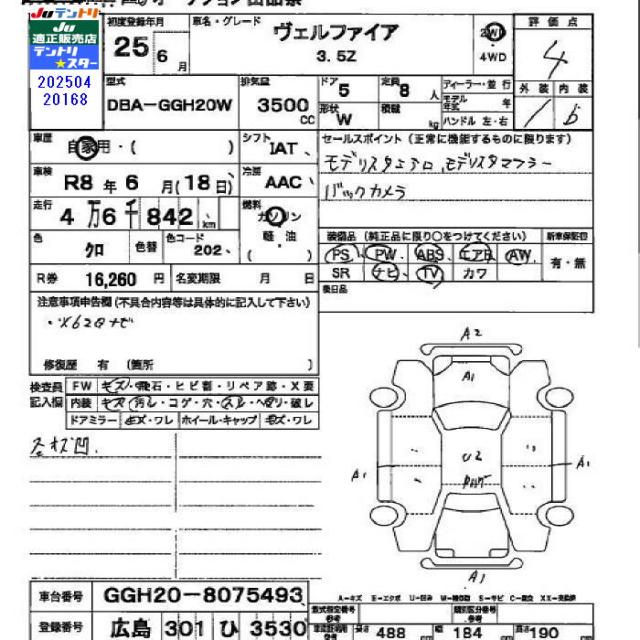 Juテントリ
Ju
適正販売店
テントリ
★スター
202504
20168
初度登録年月
25年6月
車名・グレード
ヴェルファイア
3.5Z
2WD
4WD
評価点
4
型式
DBA-GGH20W
排気量
3500cc
ドア
5
形状
W
定員
8人
積載
kg
ディーラー・並行
モデル年式 年
ハンドル 左・右
外装 内装
1 b
車歴
自家用・( )
シフト
IAT
セールスポイント (正常に機能するものに限ります)
モデリスタエアロ、モデリスタマフラー
バックカメラ
車検
R8年6月(18日)
冷房
AAC
走行
4万6千842km
燃料
ガソリン
軽・油
色
クロ
色替
色コード
202
装備品 (純正品に限り○をつけてください)
新車保証書
PS PW ABS エアB AW
SR ナビ TV カワ
有・無
R券
16,260円
名変期限 月 日
後日品
注意事項申告欄(不具合内容等は具体的に記入して下さい)
修復歴 有 (箇所 )
検査員
記入欄
FW キズ・飛石・ヒビ割・リペア跡・X要
内装 キズ・汚レ・コゲ・穴・スレ・ヘタリ・破レ
ドアミラー キズ・ワレ ホイール・キャップ キズ・ワレ
A2
A1
A1
U2
A1
A1
車台番号
GGH20-8075493
登録番号
広島 301 ひ 3530
型式指定番号
類別区分番号
長さ 488
幅 184
高さ 190